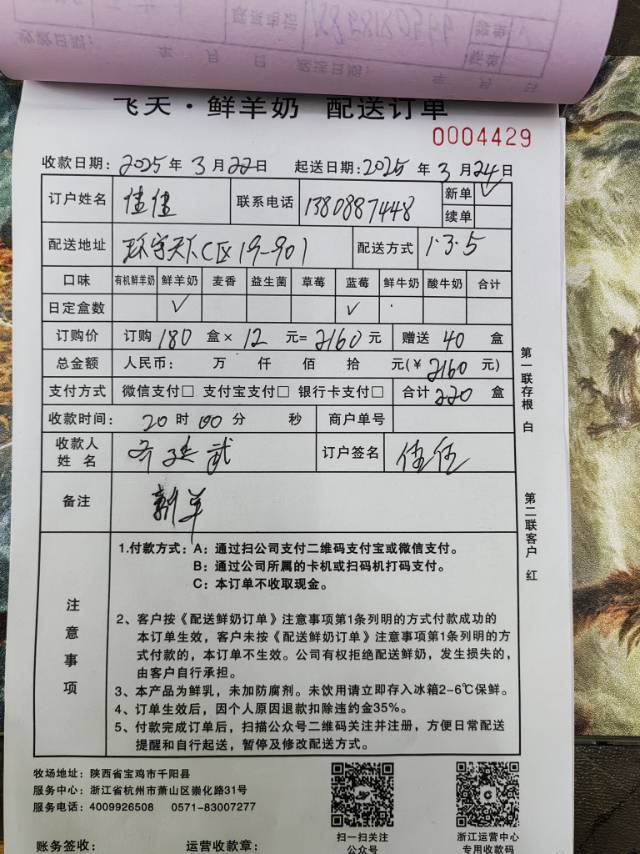 飞天·鲜羊奶 配送订单
0004429
收款日期：2025年3月22日 起送日期：2025年3月24日
订户姓名 佳佳 联系电话 1380887448 新单 ✓
续单
配送地址 环宇天下C区19-901 配送方式 1·3·5
口味 有机鲜羊奶 鲜羊奶 麦香 益生菌 草莓 蓝莓 鲜牛奶 酸牛奶 合计
日定盒数 ✓ ✓
订购价 订购180盒×12元=2160元 赠送40盒
总金额 人民币： 万 仟 佰 拾 元(￥2160元)
支付方式 微信支付□ 支付宝支付□ 银行卡支付□ 合计220盒
收款时间：20时00分 秒 商户单号
收款人
姓名 订户签名
备注 新单
注意事项
1.付款方式：A：通过扫公司支付二维码支付宝或微信支付。
B：通过公司所属的卡机或扫码机打码支付。
C：本订单不收取现金。
2、客户按《配送鲜奶订单》注意事项第1条列明的方式付款成功的
本订单生效，客户未按《配送鲜奶订单》注意事项第1条列明的方
式付款的，本订单不生效。公司有权拒绝配送鲜奶，发生损失的，
由客户自行承担。
3、本产品为鲜乳，未加防腐剂。未饮用请立即存入冰箱2-6℃保鲜。
4、订单生效后，因个人原因退款扣除违约金35%。
5、付款完成订单后，扫描公众号二维码关注并注册，方便日常配送
提醒和自行起送，暂停及修改配送方式。
第一联存根 白
第二联客户 红
牧场地址：陕西省宝鸡市千阳县
服务中心：浙江省杭州市萧山区崇化路31号
服务电话：4009926508 0571-83007277
扫一扫关注
公众号
浙江运营中心
专用收款码
账务签收： 运营收款章：